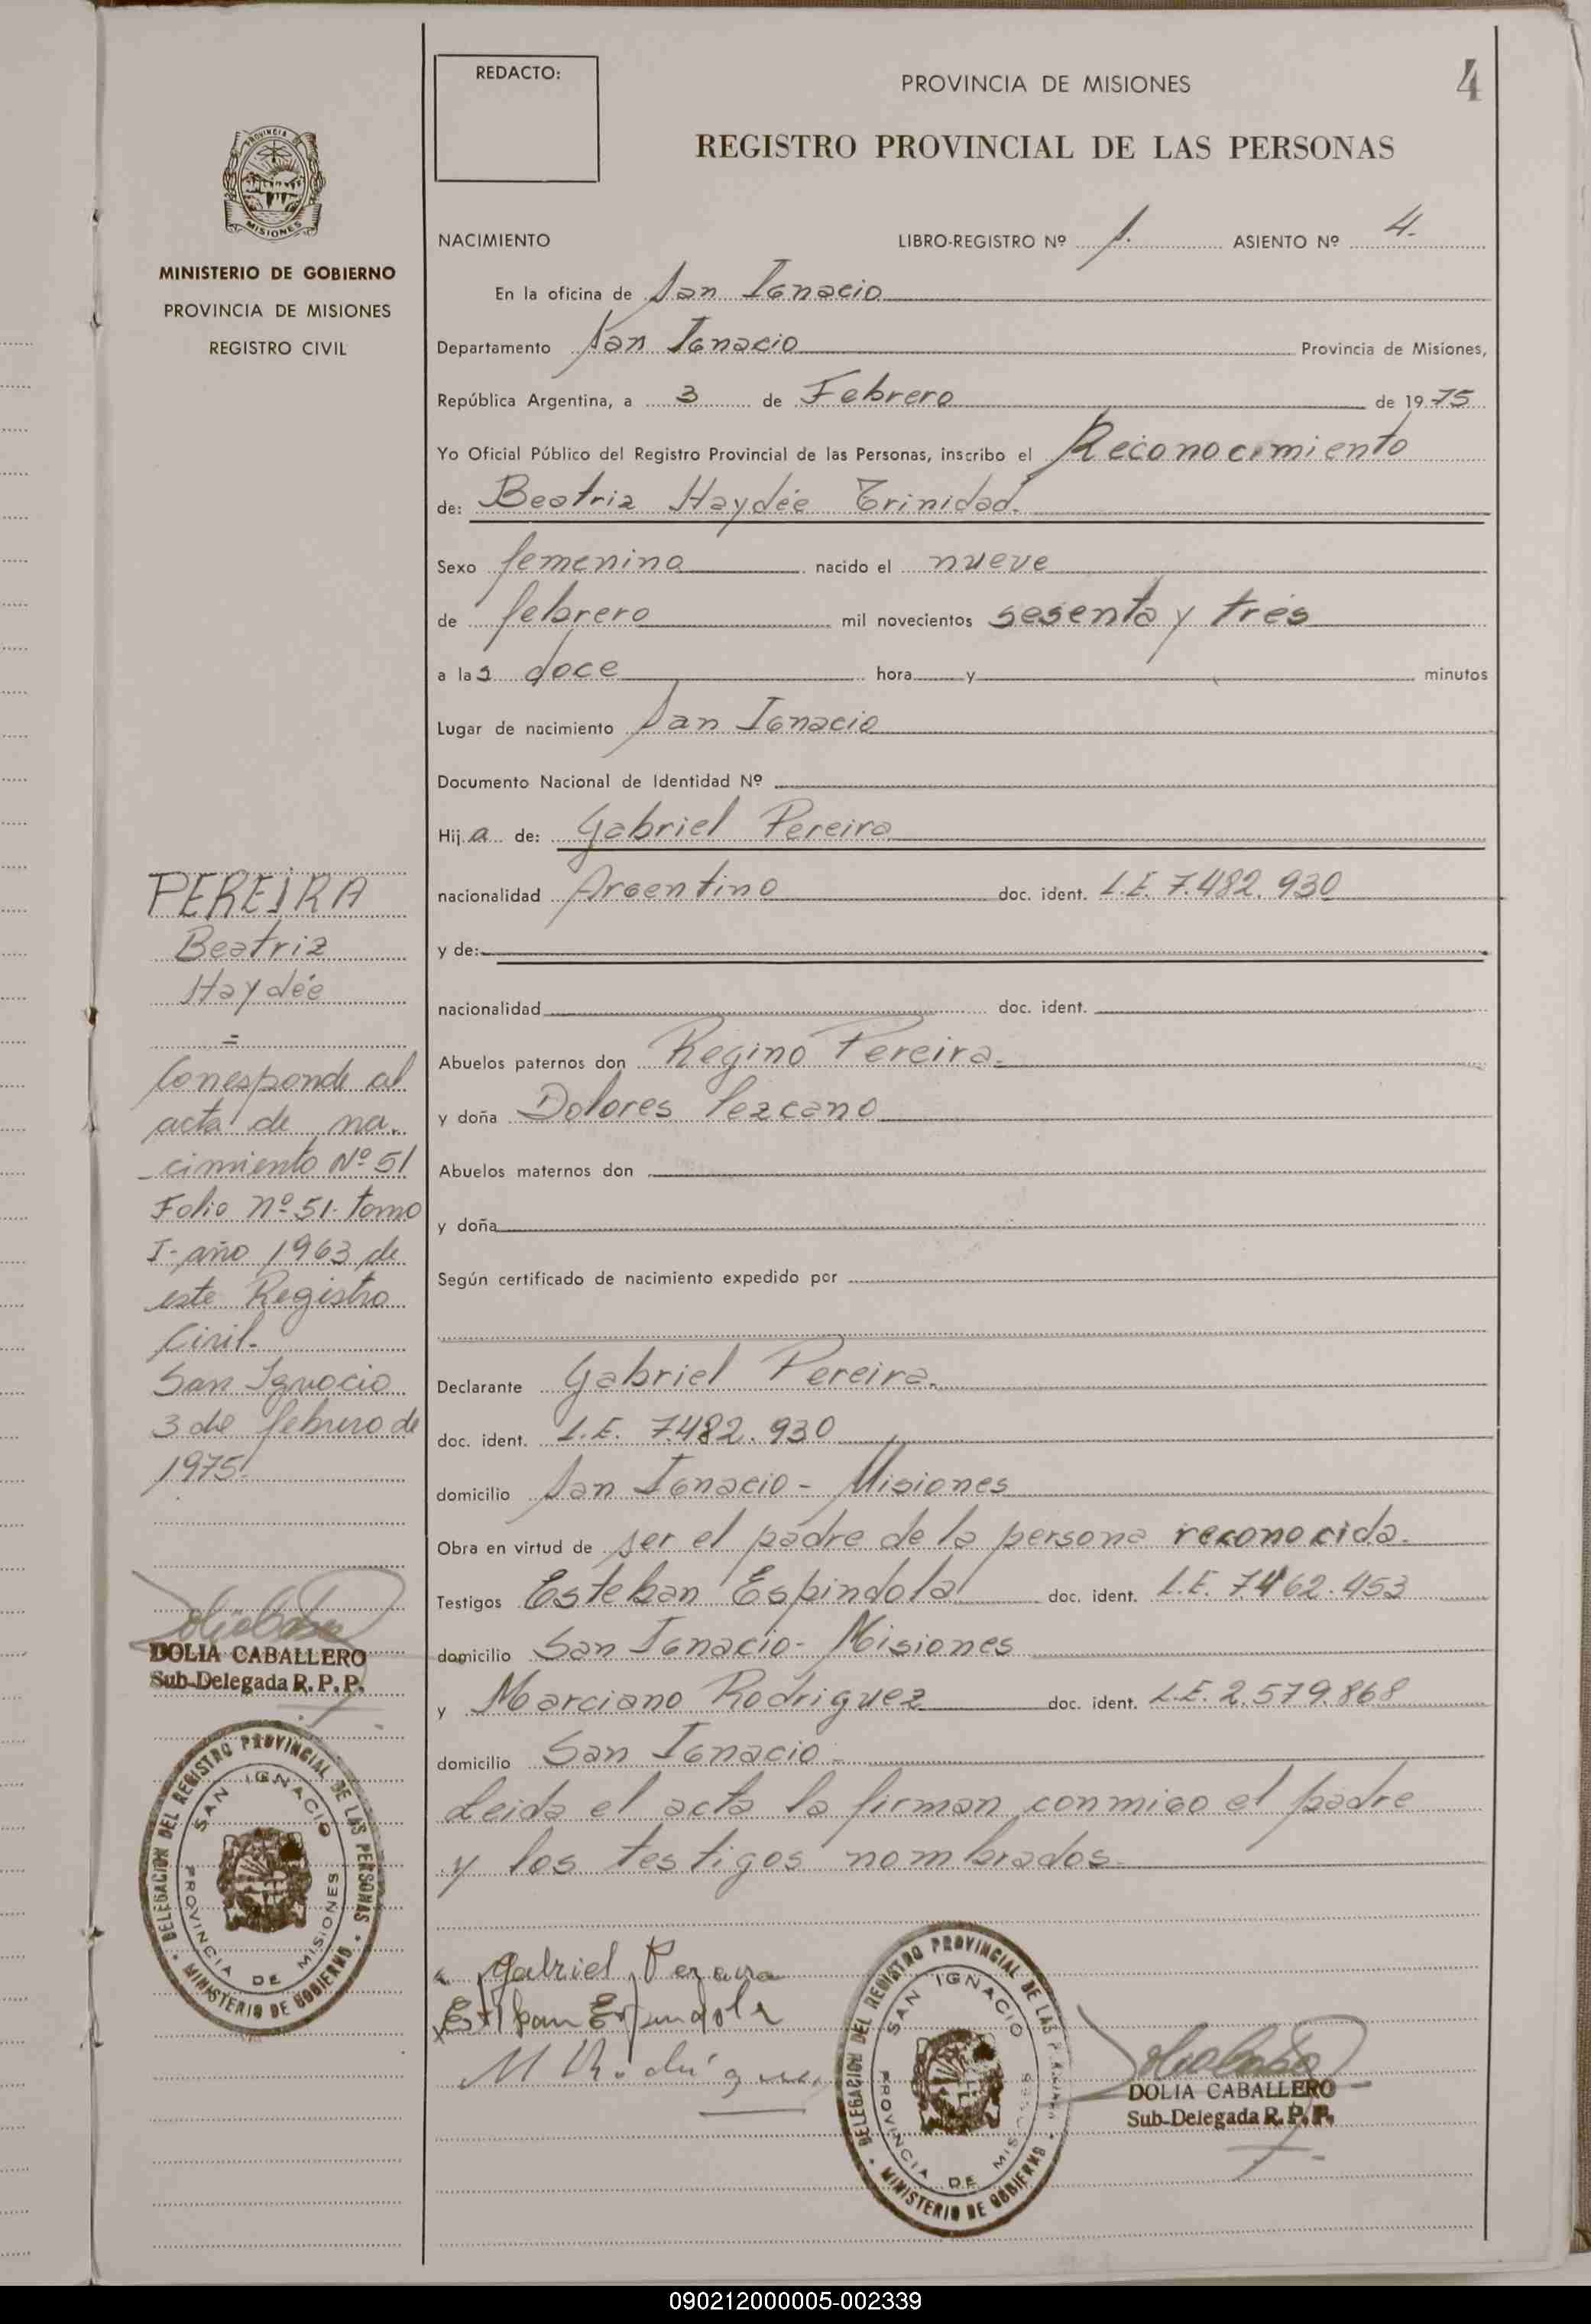 REDACTO:
PROVINCIA DE MISIONES
4
REGISTRO PROVINCIAL DE LAS PERSONAS
PROVINCIA
MISIONES
MINISTERIO DE GOBIERNO
PROVINCIA DE MISIONES
REGISTRO CIVIL
NACIMIENTO LIBRO-REGISTRO Nº 1. ASIENTO Nº 4.
En la oficina de San Ignacio
Departamento San Ignacio Provincia de Misiones,
República Argentina, a 3 de Febrero de 1975
Yo Oficial Público del Registro Provincial de las Personas, inscribo el Reconocimiento
de: Beatriz Haydée Trinidad.
Sexo femenino nacido el nueve
de febrero mil novecientos sesenta y tres
a las doce hora y minutos
Lugar de nacimiento San Ignacio
Documento Nacional de Identidad Nº
Hija de: Gabriel Pereira
nacionalidad Argentino doc. ident. L.E. 7.482.930
y de:
nacionalidad doc. ident.
Abuelos paternos don Regino Pereira.
y doña Dolores Lezcano
Abuelos maternos don
y doña
Según certificado de nacimiento expedido por
Declarante Gabriel Pereira.
doc. ident. L.E. 7.482.930
domicilio San Ignacio - Misiones
Obra en virtud de ser el padre de la persona reconocida.
Testigos Esteban Espindola doc. ident. L.E. 7.462.453
domicilio San Ignacio - Misiones
y Marciano Rodriguez doc. ident. L.E. 2.579.868
domicilio San Ignacio -
Leida el acta la firman conmigo el padre
y los testigos nombrados.
PEREIRA
Beatriz
Haydée
=
Corresponde al
acta de na-
cimiento Nº 51
Folio nº 51 tomo
I - año 1963 de
este Registro
Civil.
San Ignacio
3 de febrero de
1975.
DOLIA CABALLERO
Sub-Delegada R. P. P.
DELEGACION DEL REGISTRO PROVINCIAL DE LAS PERSONAS
MINISTERIO DE GOBIERNO
SAN IGNACIO
PROVINCIA DE MISIONES
Gabriel Pereira
Esteban Espindola
M Rodríguez
DELEGACION DEL REGISTRO PROVINCIAL DE LAS PERSONAS
MINISTERIO DE GOBIERNO
SAN IGNACIO
PROVINCIA DE MISIONES
DOLIA CABALLERO
Sub-Delegada R. P. P.
090212000005-002339